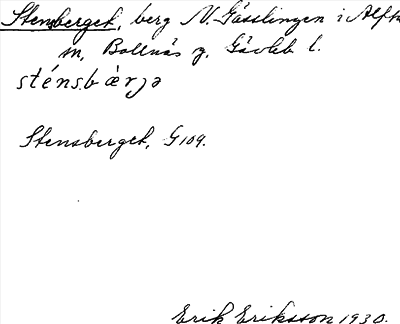 Stensberget, berg N. Gässlingen i Alfta
sn, Bollnäs g. Gävleb l.
sténsbàrjə
Stensberget, G109.
Erik Eriksson 1930.